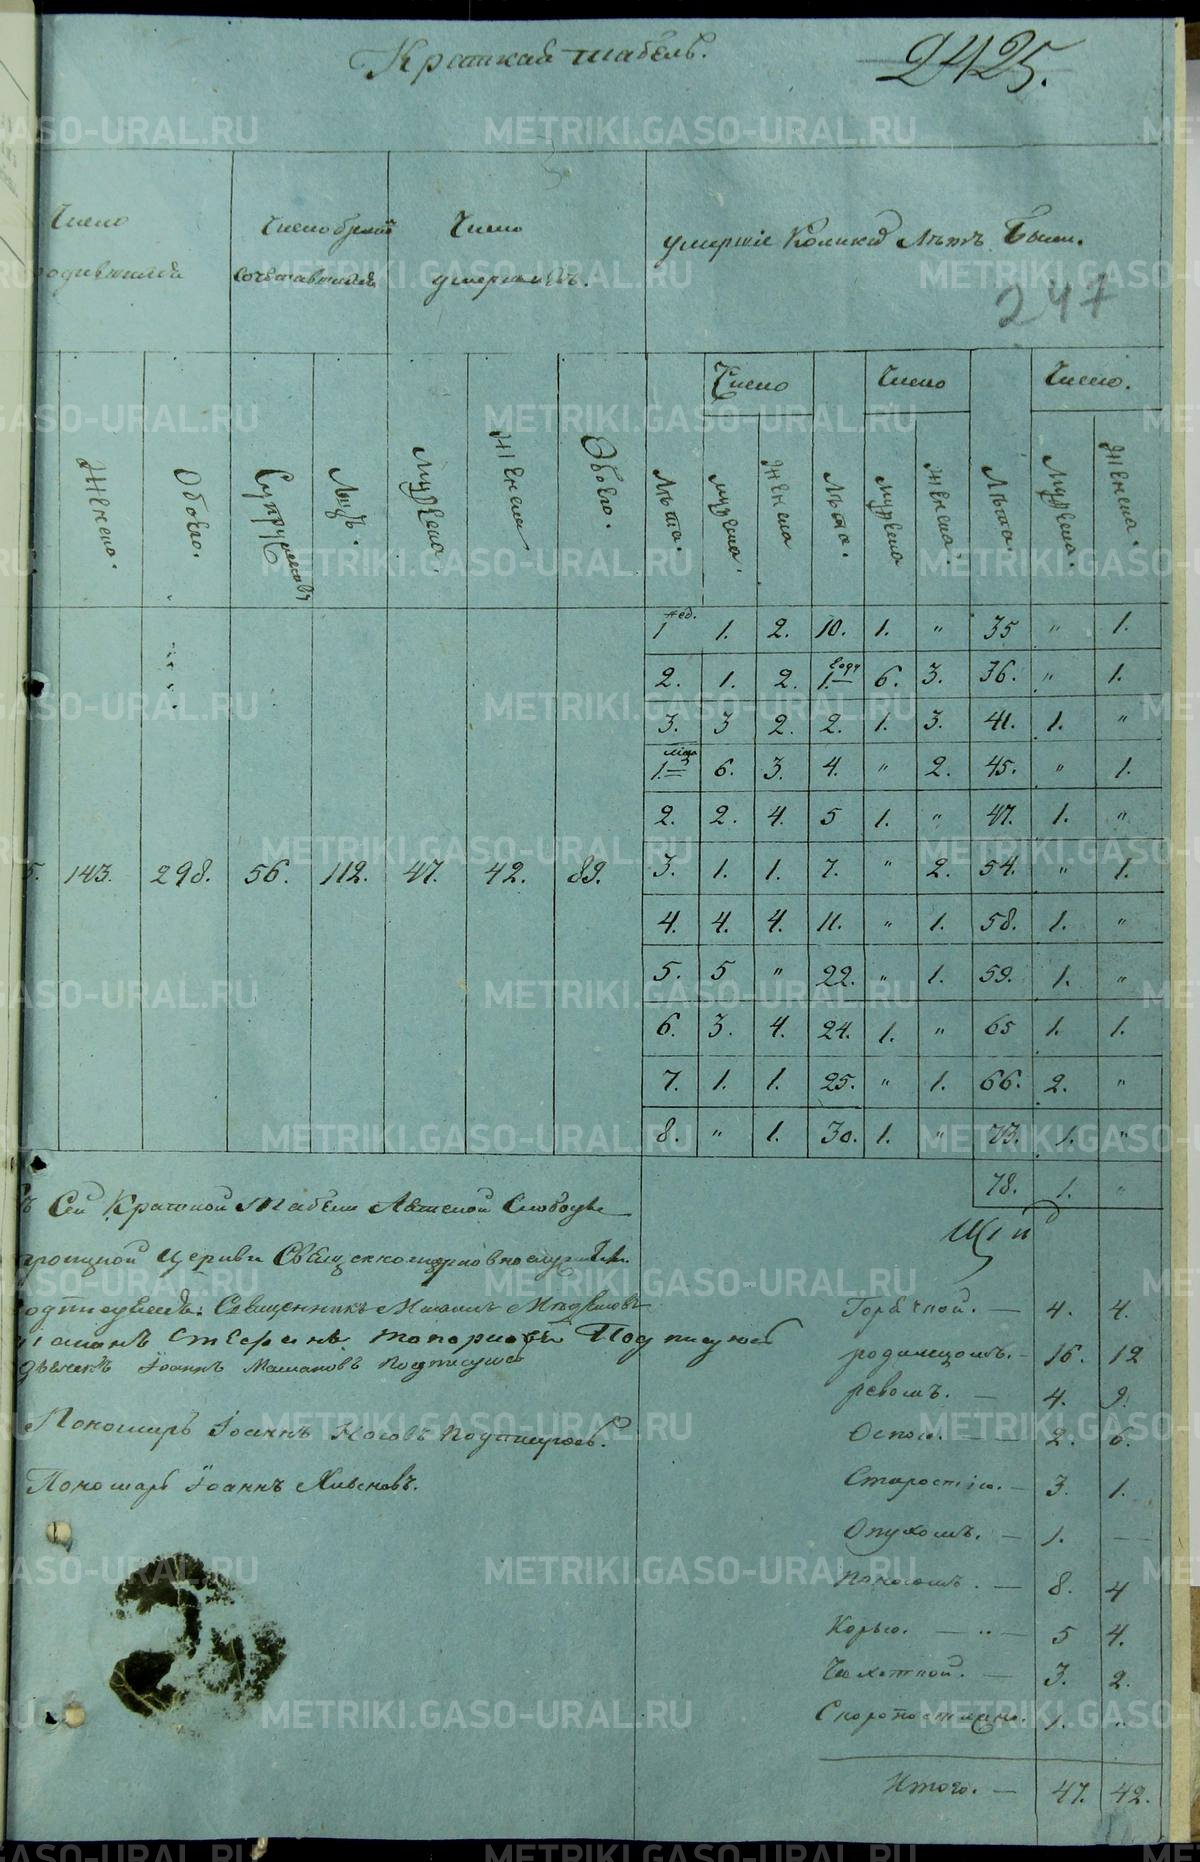 Краткая табель.
2425.
Число
Число браков
Число
умершіе Колика Лѣтъ Были.
родившихся
сочетавшихся
умершихъ.
247
Число
Число
Число.
Женска.
Обоего.
Супружествъ
Лицъ.
Мужеска
Женска
Обоего.
Лѣта.
мужеска.
Женска
Лѣта.
мужеска
Женска
Лѣта.
Мужеска.
Женска.
1 нед. 1. 2. 10. 1. " 35 " 1.
2. 1. 2. 1. году 6. 3. 36. " 1.
3. 3 2. 2. 1. 3. 41. 1. "
1. мѣся 6. 3. 4. " 2. 45. " 1.
2. 2. 4. 5 1. " 47. 1. "
5. 143. 298. 56. 112. 47. 42. 89. 3. 1. 1. 7. " 2. 54. " 1.
4. 4. 4. 11. " 1. 58. 1. "
5. 5 " 22. " 1. 59. 1. "
6. 3. 4. 24. 1. " 65 1. 1.
7. 1. 1. 25. " 1. 66. 2. "
8. " 1. 30. 1. " 73. 1. "
78. 1. "
Сей Краткой Табели Слободы
Церкви Священноцерковнослужители
Священникъ
Стефанъ Топорковъ Подписуюсь
Іоаннъ Подписуюсь
Пономарь Іоаннъ Носовъ Подписуюсь.
Пономарь Іоаннъ
Горячкой. — 4. 4.
родимцомъ. — 16. 12
ревомъ. — 4. 9.
Оспою. — 2. 6.
Старостію. — 3. 1.
Опухомъ. — 1. —
Поносомъ. — 8. 4
Корью. — 5 4.
Чахоткой. — 3. 2.
Скоропостижно. 1. "
Итого. — 47. 42.
METRIKI.GASO-URAL.RU